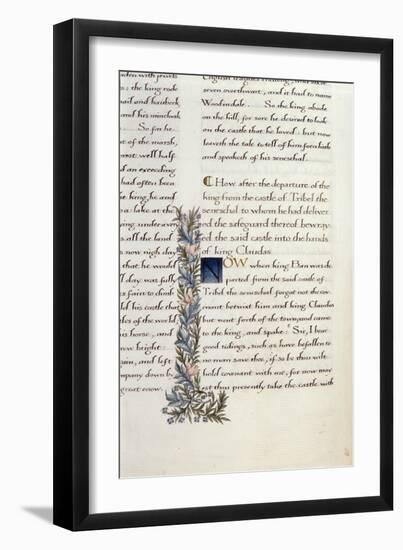 aden with jewels
the king rode
and hauberk
and his
So far he
t of the marsh,
most well half
d an exceeding
had often been
he king, he and
a lake at the
ying under even
s all the land
now nigh day
that he would
ll day was fully
es faire to climb
ld his castle that
tles of the world
is horse, and
new bright:
ain, and left
ompany down by
great
seven overthwart, and it had to name
Woodindale. So the king abode
on the hill, for sore he desired to look
on the castle that he loved: but now
leaveth the tale to tell of him forawhile
and speaketh of his seneschal.
How after the departure of the
king from the castle of Tribel the
seneschal to whom he had deliver
ed the safeguard thereof bewray
ed the said castle into the hands
of king Claudas
NOW when king Ban was de
parted from the said castle of
Tribel the seneschal forgat not the cov
enant betwixt him and king Claudas
but went forth of the town, and came
to the king, and spake: Sir, I bear
good tidings, such as have befallen to
no man save thee, if so be thou wilt
hold covenant with me, for now may
st thou presently take the castle with